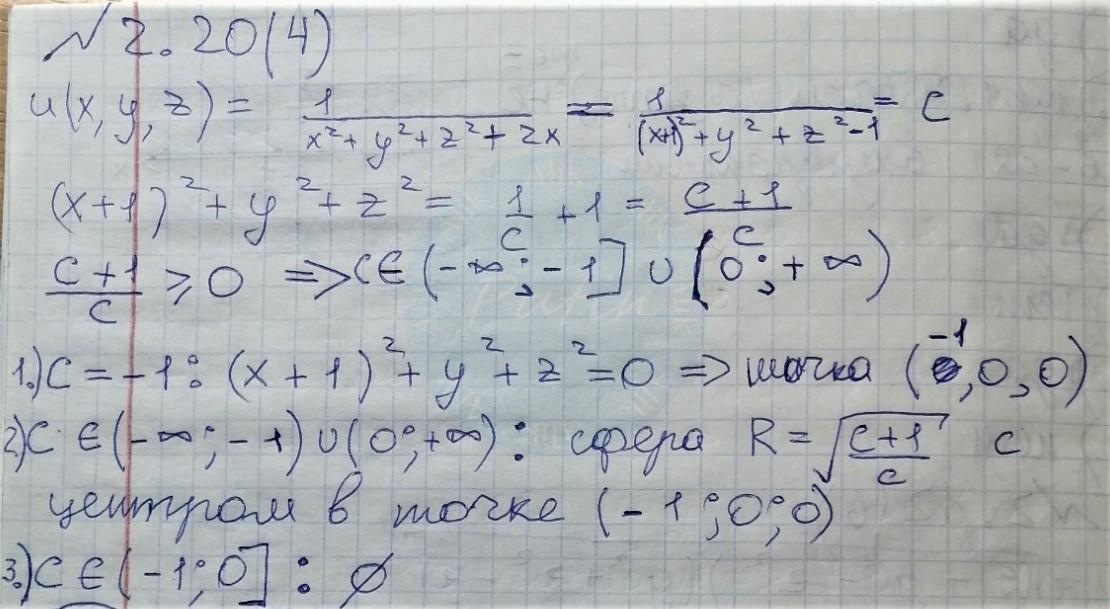 № 2.20(4)
u(x,y,z) = 1/(x²+y²+z²+2x) = 1/((x+1)²+y²+z²-1) = C
(x+1)²+y²+z² = 1/C + 1 = (C+1)/C
(C+1)/C ⩾ 0 => C ∈ (-∞;-1] ∪ (0;+∞)
1.) C = -1: (x+1)²+y²+z²=0 => точка (-1,0,0)
2) C ∈ (-∞;-1) ∪ (0;+∞): сфера R = √((C+1)/C) с
центром в точке (-1;0;0)
3.) C ∈ (-1;0] : ∅